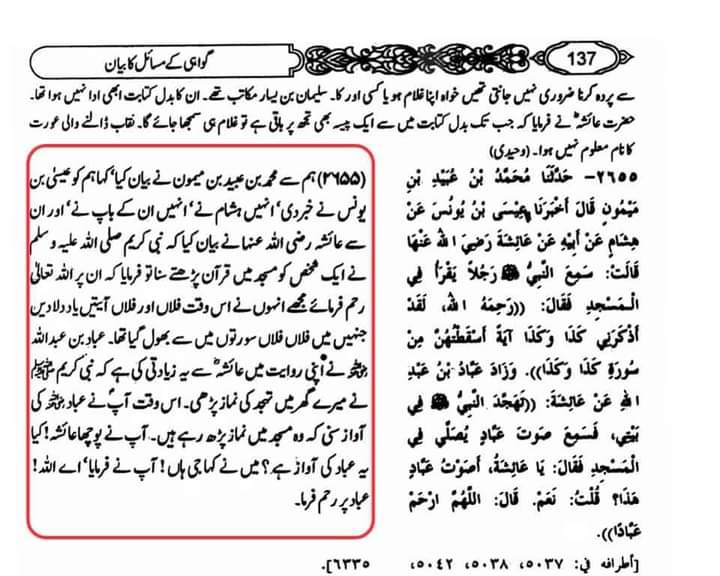 137
گواہی کے مسائل کا بیان
سے پردہ کرنا ضروری نہیں جانتی تھیں خواہ اپنا غلام ہو یا کسی اور کا۔ سلیمان بن یسار مکاتب تھے۔ ان کا بدل کتابت ابھی ادا نہیں ہوا تھا۔
حضرت عائشہؓ نے فرمایا کہ جب تک بدل کتابت میں سے ایک پیسہ بھی تجھ پر باقی ہے تو غلام ہی سمجھا جائے گا۔ نقاب ڈالنے والی عورت
کا نام معلوم نہیں ہوا۔ (وحیدی)
٢٦٥٥- حَدَّثَنَا مُحَمَّدُ بْنُ عُبَيْدِ بْنِ
مَيْمُونٍ قَالَ أَخْبَرَنَا عِيْسَى بْنُ يُونُسَ عَنْ
هِشَامٍ عَنْ أَبِيْهِ عَنْ عَائِشَةَ رَضِيَ اللهُ عَنْهَا
قَالَتْ: سَمِعَ النَّبِيُّ ﷺ رَجُلاً يَقْرَأُ فِي
الْمَسْجِدِ فَقَالَ: ((رَحِمَهُ اللهُ، لَقَدْ
أَذْكَرَنِي كَذَا وَكَذَا آيَةً أَسْقَطْتُهُنَّ مِنْ
سُورَةِ كَذَا وَكَذَا)). وَزَادَ عَبَّادُ بْنُ عَبْدِ
اللهِ عَنْ عَائِشَةَ: ((تَهَجَّدَ النَّبِيُّ ﷺ فِي
بَيْتِي، فَسَمِعَ صَوتَ عَبَّادٍ يُصَلِّي فِي
الْمَسْجِدِ فَقَالَ: يَا عَائِشَةُ، أَصَوْتُ عَبَّادٍ
هَذَا؟ قُلْتُ: نَعَمْ. قَالَ: اللَّهُمَّ ارْحَمْ
عَبَّادًا)).
[أطرافه في: ٥٠٣٧، ٥٠٣٨، ٥٠٤٢،
٦٣٣٥].
(٢٦٥٥) ہم سے محمد بن عبید بن میمون نے بیان کیا، کہا ہم کو عیسیٰ بن
یونس نے خبر دی، انہیں ہشام نے، انہیں ان کے باپ نے، اور ان
سے عائشہ رضی اللہ عنہا نے بیان کیا کہ نبی کریم صلی اللہ علیہ و سلم
نے ایک شخص کو مسجد میں قرآن پڑھتے سنا تو فرمایا کہ ان پر اللہ تعالیٰ
رحم فرمائے مجھے انہوں نے اس وقت فلاں اور فلاں آیتیں یاد دلا دیں
جنہیں میں فلاں فلاں سورتوں میں سے بھول گیا تھا۔ عباد بن عبداللہ
رضی اللہ عنہ نے اپنی روایت میں عائشہؓ سے یہ زیادتی کی ہے کہ نبی کریم ﷺ
نے میرے گھر میں تہجد کی نماز پڑھی۔ اس وقت آپؐ نے عباد رضی اللہ عنہ کی
آواز سنی کہ وہ مسجد میں نماز پڑھ رہے ہیں۔ آپ نے پوچھا عائشہ! کیا
یہ عباد کی آواز ہے؟ میں نے کہا جی ہاں! آپ نے فرمایا، اے اللہ!
عباد پر رحم فرما۔